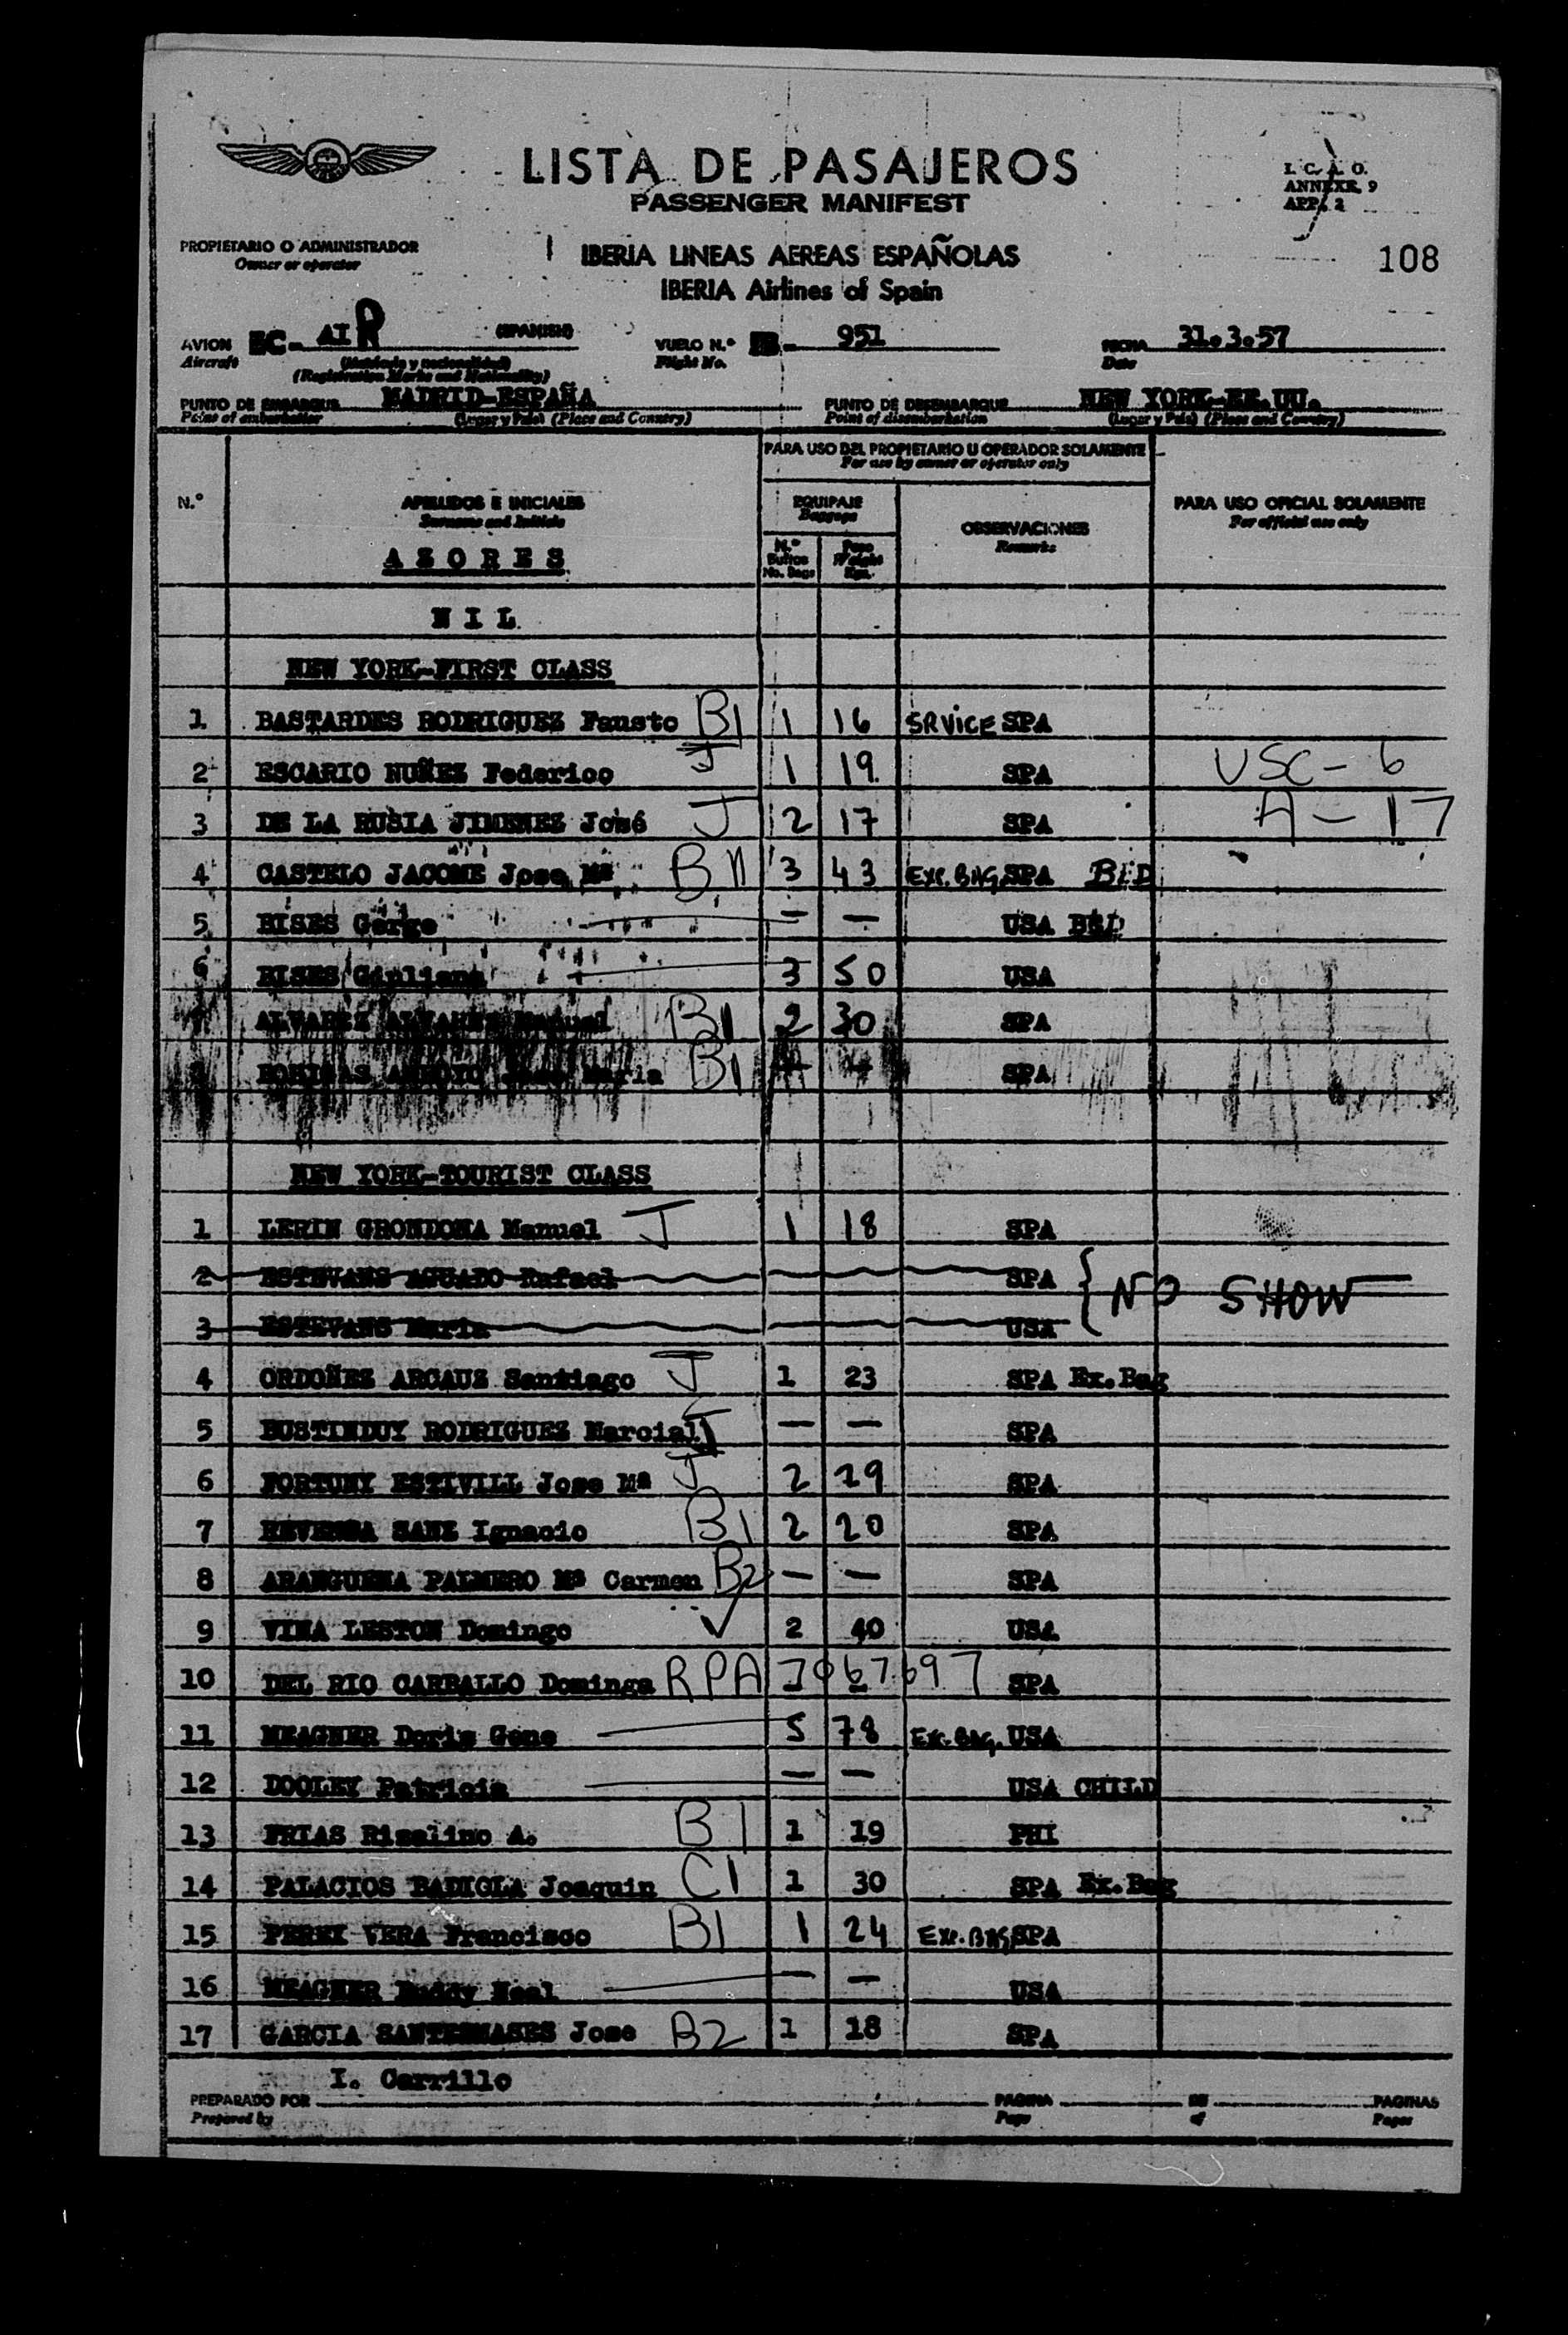 LISTA DE PASAJEROS
PASSENGER MANIFEST
I. C. A. O.
ANNEXE 9
APP. 2
PROPIETARIO O ADMINISTRADOR
Owner or operator
IBERIA LINEAS AEREAS ESPAÑOLAS
IBERIA Airlines of Spain
108
AVION EC- AIR (SPANISH) VUELO N.º IB- 951 FECHA 31.3.57
Aircraft (Matrícula y nacionalidad) Flight No. Date
(Registration Marks and Nationality)
PUNTO DE EMBARQUE MADRID-ESPAÑA PUNTO DE DESEMBARQUE NEW YORK-EE.UU.
Point of embarkation (Lugar y País) (Place and Country) Point of disembarkation (Lugar y País) (Place and Country)
PARA USO DEL PROPIETARIO U OPERADOR SOLAMENTE
For use by owner or operator only
N.º APELLIDOS E INICIALES EQUIPAJE PARA USO OFICIAL SOLAMENTE
Surname and Initials Baggage OBSERVACIONES For official use only
Remarks
AZORES N.º Bultos No. Bags Peso Weight Kgs.
NIL
NEW YORK-FIRST CLASS
1 BASTARDES RODRIGUEZ Fausto B1 1 16 SRVICE SPA
2 ESCARIO NUÑEZ Federico J 1 19 SPA USC-6
3 DE LA RUBIA JIMENEZ José J 2 17 SPA A-17
4 CASTELO JACOME Jose Mª B11 3 43 EXC.BAG. SPA BED
5 BISES Gorge — — USA BED
6 BISES Giuliana 3 50 USA
7 ALVAREZ ALVAREZ Manuel B1 2 30 SPA
Maria B1 SPA
NEW YORK-TOURIST CLASS
1 LERIN GRONDONA Manuel J 1 18 SPA
2 ESTEVANS AGUADO Rafael SPA { NO SHOW
3 ESTEVANS Maria USA
4 ORDOÑEZ ARCAUZ Santiago J 1 23 SPA Ex.Bag
5 BUSTINDUY RODRIGUEZ Marcial J — — SPA
6 FORTUNY ESTIVILL Jose Mª J 2 29 SPA
7 SANZ Ignacio B1 2 20 SPA
8 ARANGUENA PALMERO Mª Carmen B2 — — SPA
9 VINA LESTON Domingo ✓ 2 40 USA
10 DEL RIO CARBALLO Dominga RPA 7067697 SPA
11 MEAGHER Doris Gene 5 78 EX.BAG. USA
12 DOOLEY Patricia — — USA CHILD
13 FRIAS Rizalino A. B1 1 19 PHI
14 PALACIOS BADIOLA Joaquin C1 1 30 SPA Ex.Bag
15 PEREZ VERA Francisco B1 1 24 EXC.BAG SPA
16 MEAGHER Buddy Neal — — USA
17 GARCIA SANTESMASES Jose B2 1 18 SPA
I. Carrillo
PREPARADO POR PAGINA DE PAGINAS
Prepared by Page of Pages